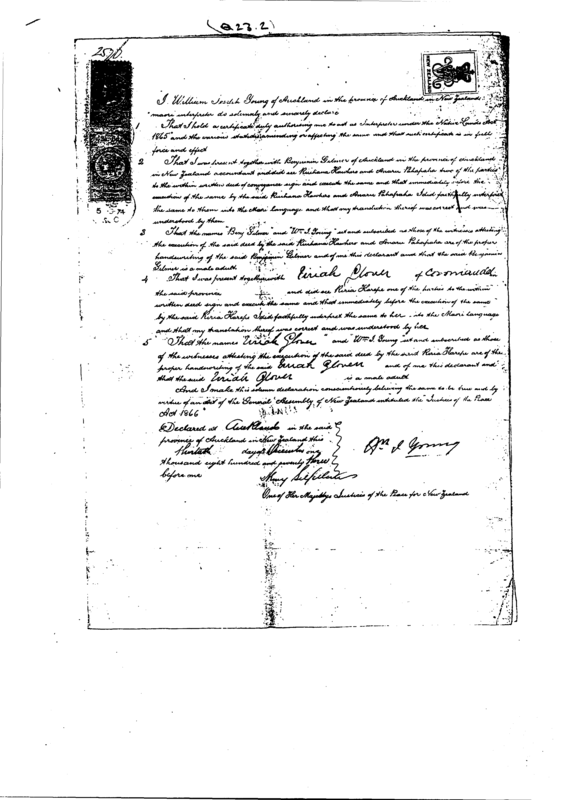 (Q23.2)
2570
NEW ZEALAND
I William Joseph Young of Auckland in the province of Auckland in New Zealand
maori interpreter do solemnly and sincerely declare
1 That I hold a certificate duly authorising me to act as Interpreter under the Native Lands Act
1865 and the various statutes amending or affecting the same and that such certificate is in full
force and effect
2 That I was present together with Benjamin Gilmer of Auckland in the province of Auckland
in New Zealand accountant and did see and of the parties
to the within written deed of conveyance sign and execute the same and that immediately before the
execution of the same by the said and I did faithfully interpret
the same to them into the Maori language and that my translation thereof was correct and was
understood by them
3 That the names "Benj Gilmer" and "Wm J. Young" set and subscribed as those of the witnesses attesting
the execution of the said deed by the said and are of the proper
handwriting of the said Benjamin Gilmer and of me this declarant and that the said Benjamin
Gilmer is a male adult
4 That I was present together with Uriah Glover of Coromandel
the said province and did see one of the parties to the within
written deed sign and execute the same and that immediately before the execution of the same
by the said I did faithfully interpret the same to her into the Maori language
and that my translation thereof was correct and was understood by her
5 That the names "Uriah Glover" and "Wm J. Young" set and subscribed as those
of the witnesses attesting the execution of the said deed by the said are of the
proper handwriting of the said Uriah Glover and of me this declarant and
that the said Uriah Glover is a male adult
And I make this solemn declaration conscientiously believing the same to be true and by
virtue of an Act of the General Assembly of New Zealand intituled the "Justices of the Peace
Act 1866"
Declared at Auckland in the said
province of Auckland in New Zealand this
day of December one
thousand eight hundred and seventy three
before me
Wm J Young
One of Her Majesty's Justices of the Peace for New Zealand